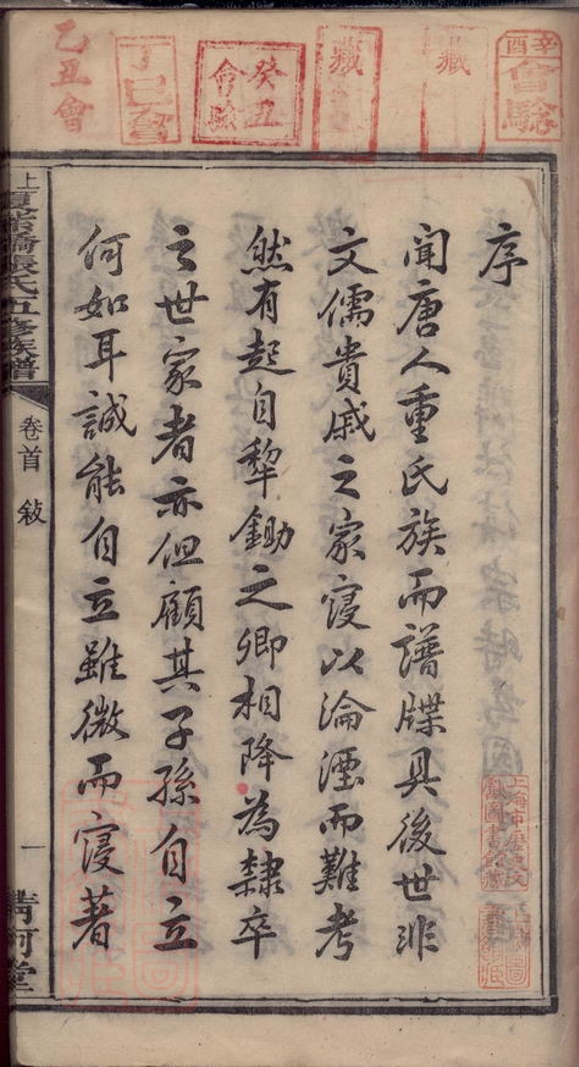 辛酉會驗
藏
藏
癸丑會驗
丁巳會
乙丑會
序
聞唐人重氏族而譜牒具後世非
文儒貴戚之家寖以淪湮而難考
然有起自犂鋤之卿相降為隸卒
之世家者亦但顧其子孫自立
何如耳誠能自立雖微而寖著
上 張氏五修族譜
卷首 敍
一
清河堂